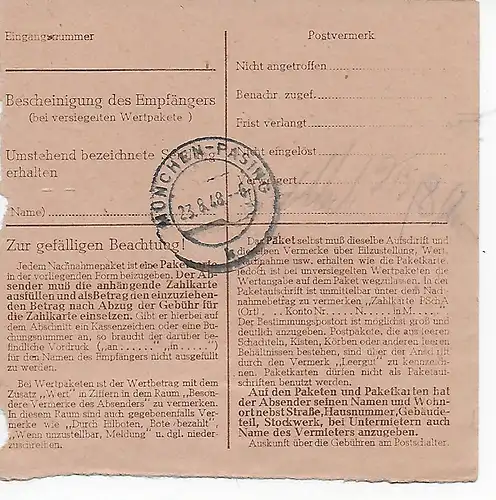 Eingangsnummer
Bescheinigung des Empfängers
(bei versiegelten Wertpakete )
Umstehend bezeichnete
erhalten
Name)
Postvermerk
Nicht angetroffen
Benachr. zugef.
Frist verlangt
eingelöst
MÜNCHEN-PASING
23.8.48.
k
Zur gefälligen Beachtung!
Jedem Nachnahmepaket ist eine Paketkarte
in der vorliegenden Form beizugeben. Der Ab-
sender muß die anhängende Zahlkarte
ausfüllen und als Betrag den einzuziehen-
den Betrag nach Abzug der Gebühr für
die Zahlkarte einsetzen. Gibt er hierbei auf
dem Abschnitt ein Kassenzeichen oder eine Bu-
chungsnummer an, so braucht der darüber be-
findliche Vordruck („an ........ in ........")
für den Namen des Empfängers nicht ausgefüllt
zu werden.
Bei Wertpaketen ist der Wertbetrag mit dem
Zusatz „Wert" in Ziffern in dem Raum „Beson-
dere Vermerke des Absenders" zu vermerken.
In diesem Raum sind auch gegebenenfalls Ver-
merke wie „Durch Eilboten, Bote bezahlt",
„Wenn unzustellbar, Meldung" u. dgl. nieder-
zuschreiben.
Das Paket selbst muß dieselbe Aufschrift und
dieselben Vermerke über Eilzustellung, Wert,
Nachnahme usw. erhalten wie die Paketkarte,
jedoch ist bei unversiegelten Wertpaketen die
Wertangabe auf dem Paket wegzulassen. In der
Paketaufschrift ist unmittelbar unter dem Nach-
nahmebetrag zu vermerken „Zahlkarte PSchA
(Ort) ... Konto Nr. ... N. ... in M. ...".
Der Bestimmungspostort ist möglichst groß und
deutlich anzugeben. Postpakete, die aus leeren
Schachteln, Kisten, Körben oder anderen leeren
Behältnissen bestehen, sind über der Anschrift
durch den Vermerk „Leergut" zu kennzeich-
nen. Paketkarten dürfen nicht als Paketauf-
schriften benutzt werden.
Auf den Paketen und Paketkarten hat
der Absender seinen Namen und Wohn-
ort nebst Straße, Hausnummer, Gebäude-
teil, Stockwerk, bei Untermietern auch
Name des Vermieters anzugeben.
Auskunft über die Gebühren am Postschalter.